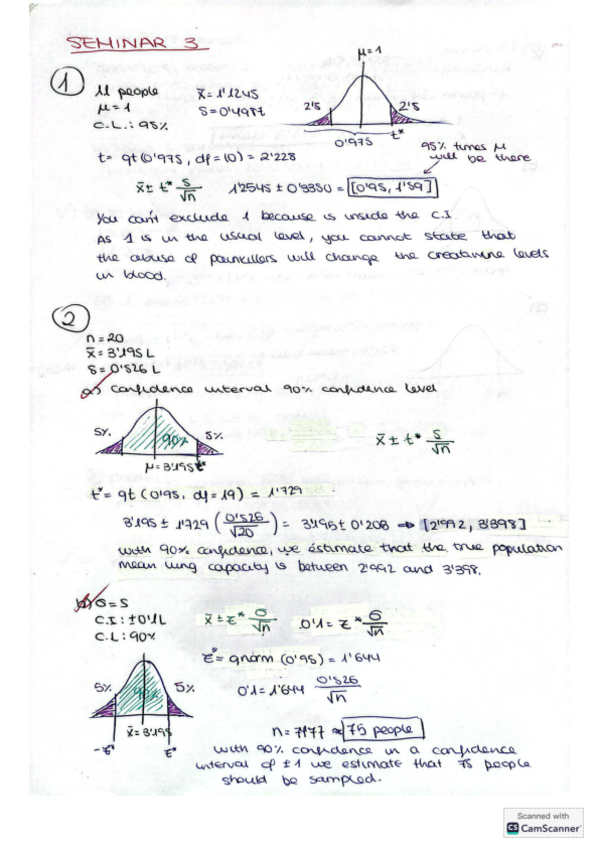 SEMINAR 3
1
11 people
μ = 1
C.L.: 95%
x̄ = 1'1245
s = 0'4987
μ = 1
2'5
2'5
0'975
t*
95% times μ
will be there
t = qt(0'975, df=10) = 2'228
x̄ ± t* s/√n    1'2545 ± 0'3350 = [0'95, 1'59]
You can't exclude 1 because is inside the C.I.
As 1 is in the usual level, you cannot state that
the abuse of painkillers will change the creatinine levels
in blood.
2
n = 20
x̄ = 3'195 L
s = 0'526 L
a) Confidence interval 90% confidence level
5%
90%
5%
μ = 3'195 t*
x̄ ± t* s/√n
t* = qt (0'95, df = 19) = 1'729
3'195 ± 1'729 (0'526/√20) = 3'195 ± 0'208 ⇒ [2'992, 3'398]
with 90% confidence, we estimate that the true population
mean lung capacity is between 2'992 and 3'398.
b) σ = s
C.I: ±0'1L
C.L: 90%
x̄ ± z* σ/√n    0'1 = z* σ/√n
z* = qnorm (0'95) = 1'644
0'1 = 1'644 0'526/√n
5%
90%
5%
x̄ = 3'195
-z*
z*
≈ 75 people
with 90% confidence in a confidence
interval of ±1 we estimate that 75 people
should be sampled.
Scanned with
CS CamScanner